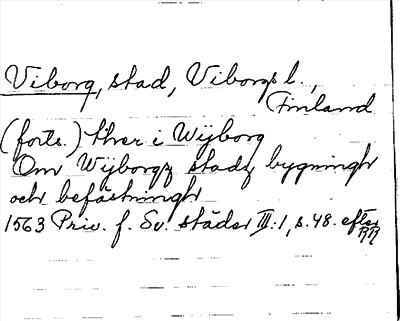 Viborg, stad, Viborgs l.,
Finland
(forts.) ther i Wijborg
Om Wijborgz stadz bygningh
och befästningh
1563 Priv. f. Sv. städer III:1, s. 48. efter
RR